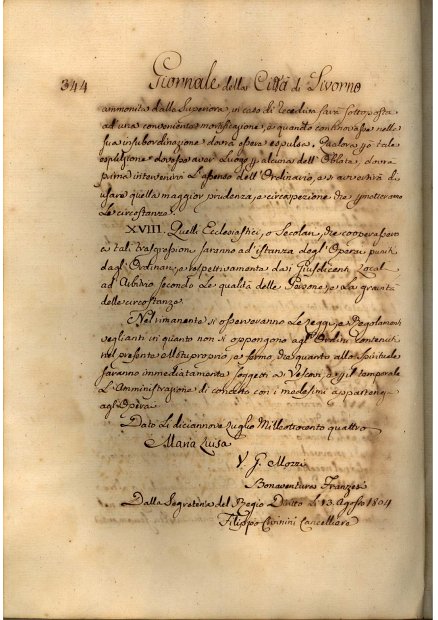 344 Giornale della Città di Livorno
ammonita dalla Superiora, in caso di recedura sarà sottoposta
ad una conveniente mortificazione, e quando continovasse nella
sua insubordinazione dovrà essere espulsa. Qualora tale
espulsione dovesse aver luogo alcuna dell'Oblate, dovrà
prima intervenirvi l'assenso dell'Ordinario, e si avvertirà di
usare quella maggior prudenza, e circospezione che
le circostanze.
XVIII. Quelli Ecclesiastici, o Secolari, che cooperassero
a tali trasgressioni saranno ad istanza degl'Operai puniti
dagl'Ordinari, e respettivamente dai Giusdicenti Locali
ad Arbitrio secondo le qualità delle Persone, e la gravità
delle circostanze.
Nel rimanente si osserveranno le Leggi, e Regolamenti
veglianti in quanto non si oppongono agl'Ordini contenuti
nel presente Motuproprio, e fermo che quanto allo Spirituale
saranno immediatamente soggetti ai Vescovi, e il temporale
l'Amministrazione di concerto con i medesimi appartenga
agl'Operai
Dato li diciannove Luglio Milleottocento quattro
Maria Luisa
V. G. Mozzi
Bonaventura
Dalla Segreteria del Regio Dritto li 13. Agosto 1804
Filippo Cancelliere